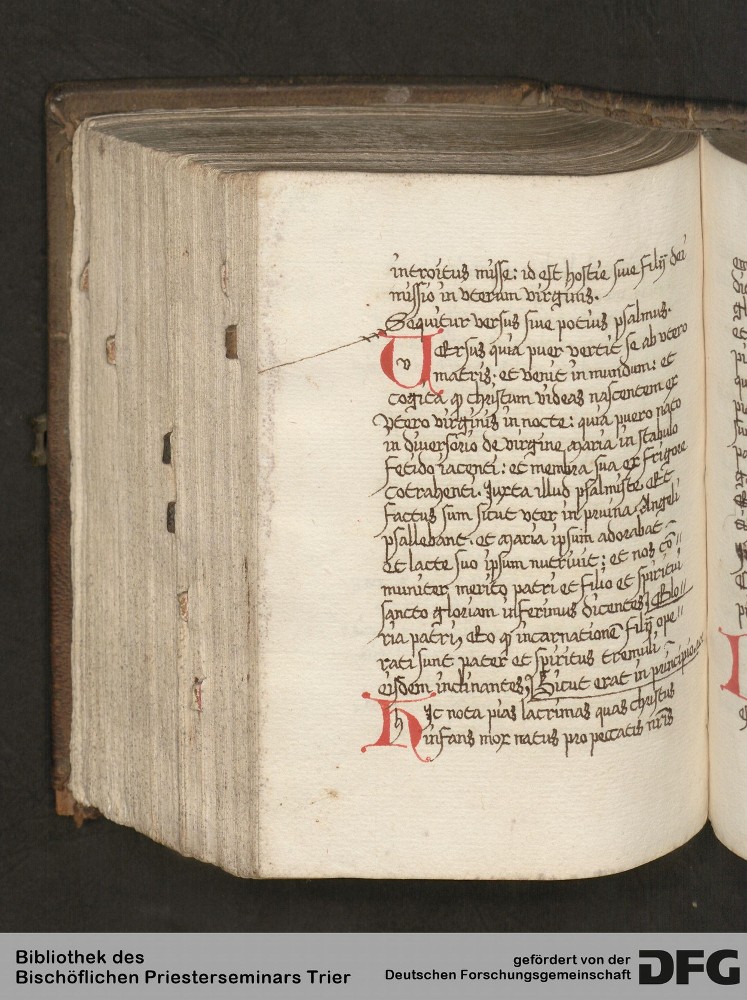 introitus misse: id est hostie siue filij dei
missio in vterum virginis.
Sequitur versus siue potius psalmus.
VErsus quia puer vertit se ab vtero
matris: et venit in mundum: et
cogita qͥ christum videas nascentem ex
vtero virginis in nocte: quia puero nato
in diuersorio de virgine maria in stabulo
fetido iacenti: et membra sua ex frigore
cotrahenti. Iuxta illud psalmiste. Et
factus sum sicut vter in pruina. Angeli
psallebant. et maria ipsum adorabat
et lacte suo ipsum nutriuit: et nos cō//
muniter merito patri et filio et spiritui
sancto gloriam inferimus dicentes Glo//
ria patri, eto qͥ incarnationē filij ope//
rati sunt pater et spiritus tremuli
eisdem inclinantes, Sicut erat in principio
HIc nota pias lacrimas quas christus
infans mox natus pro peccatis nr̄is
Bibliothek des
Bischöflichen Priesterseminars Trier
gefördert von der
Deutschen Forschungsgemeinschaft
DFG